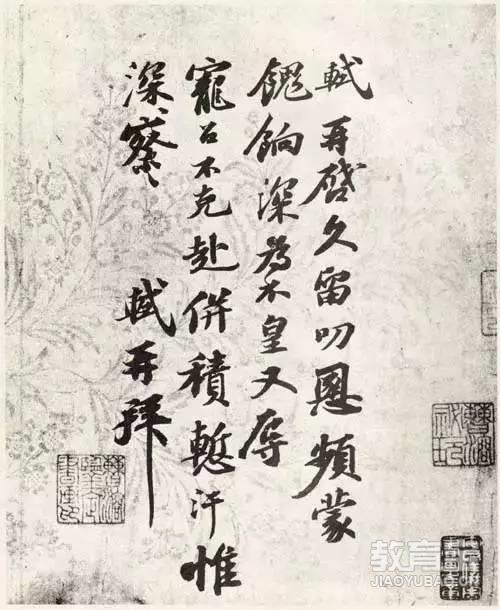 軾再啓久留叨恩頻蒙
餽餉深為不皇又辱
寵召不克赴併積慙汗惟
深察 軾再拜
曹溶秘玩
教育
JIAOYUBA